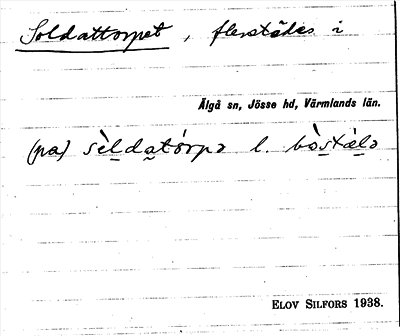 Soldattorpet, flerstädes i
Älgå sn, Jösse hd, Värmlands län.
(pa) sèldatórpə l. bòstælə
ELOV SILFORS 1938.